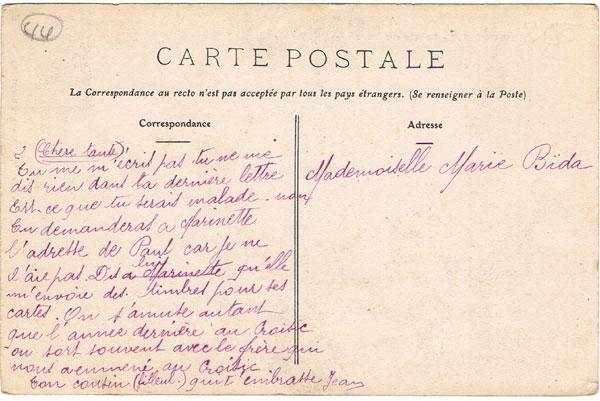 44
CARTE POSTALE
La Correspondance au recto n'est pas acceptée par tous les pays étrangers. (Se renseigner à la Poste)
Correspondance
Adresse
2 (Chère tante)
Tu me m'écrit pas tu ne me
dis rien dans ta dernière lettre
Est-ce que tu serais malade. non
Tu demanderas a Marinette
l'adresse de Paul car je ne
l'aie pas. Dis a Marinette qu'elle
m'envoie des timbres pour ses
cartes. On s'amuse autant
que l'année dernière au Croisic
on sort souvent avec le frère qui
nous a emmené au Croisic
Ton cousin (filleul) qui t'embrasse Jean
Mademoiselle Marie Bïda